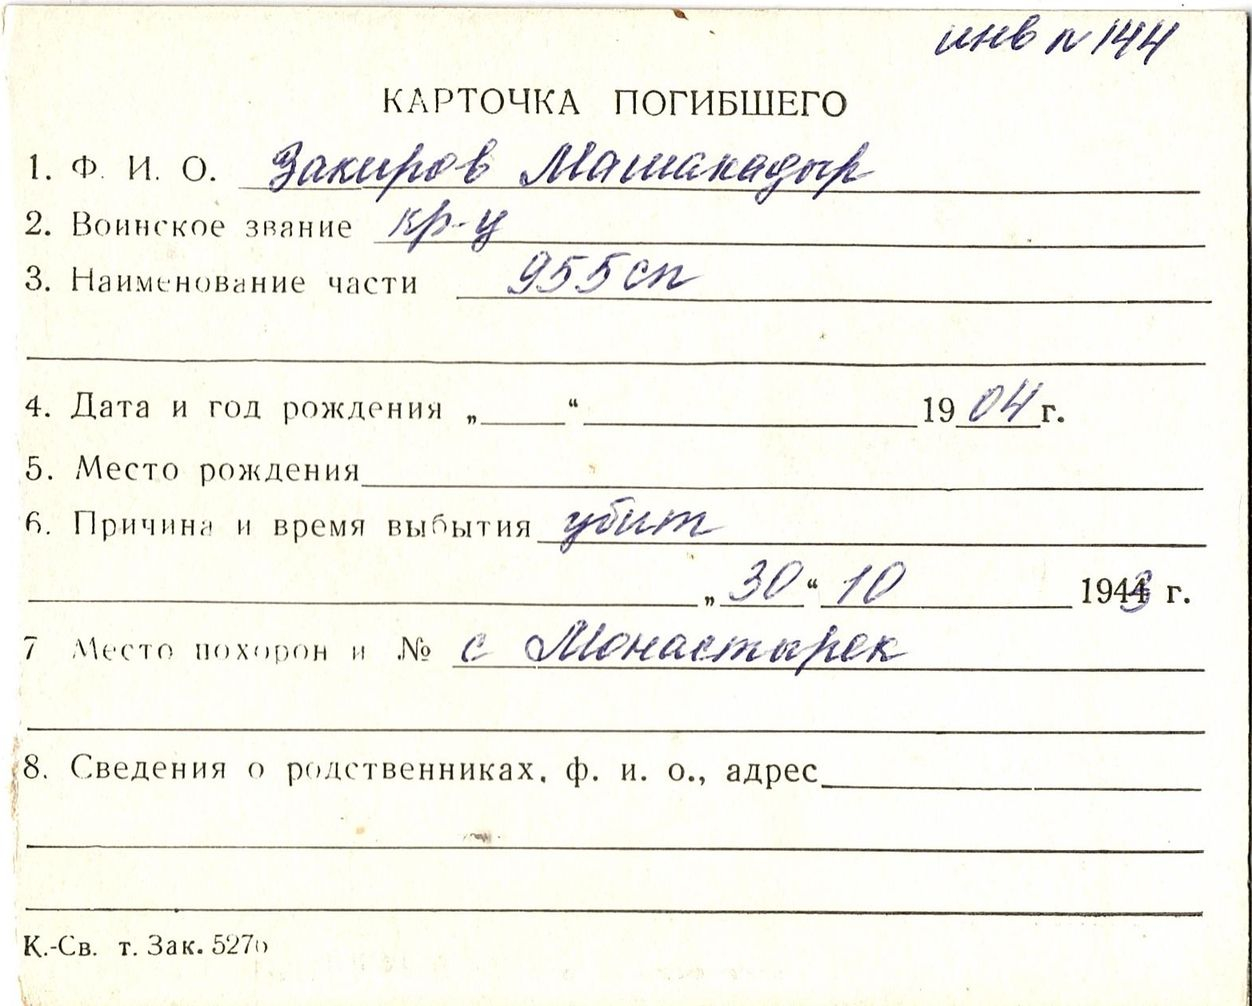 инв № 144
КАРТОЧКА ПОГИБШЕГО
1. Ф. И. О. Закиров Машакадыр
2. Воинское звание кр-ц
3. Наименование части 955 сп
4. Дата и год рождения „ “ 1904 г.
5. Место рождения
6. Причина и время выбытия убит
„ 30 “ 10 1943 г.
7 Место похорон и № с Монастырек
8. Сведения о родственниках, ф. и. о., адрес
К.-Св. т. Зак. 5270